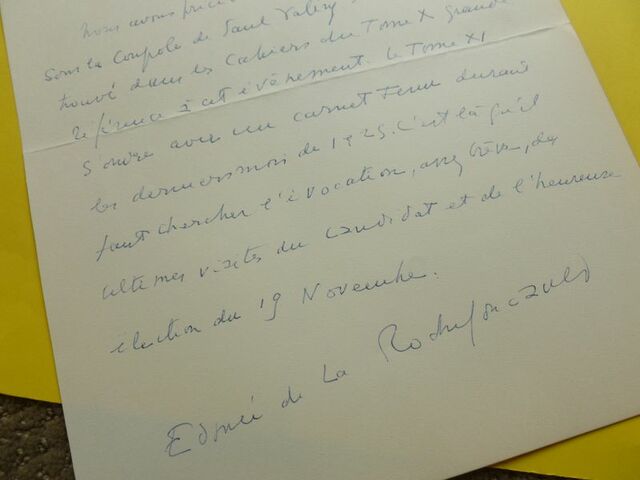 Nous avons
sous la Coupole de Paul Valéry
trouvé dans les Cahiers du Tome X grande
référence à cet évènement. Le Tome XI
s'ouvre avec un carnet tenu durant
les derniers mois de 1925. C'est là qu'il
faut chercher l'évocation, assez brève, des
ultimes visites du candidat et de l'heureuse
élection du 19 Novembre.
Edmée de La Rochefoucauld